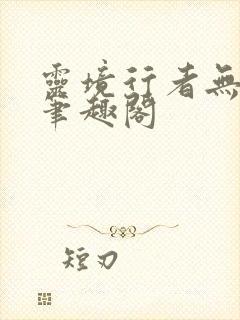 靈境行者無
筆趣閣
短刃